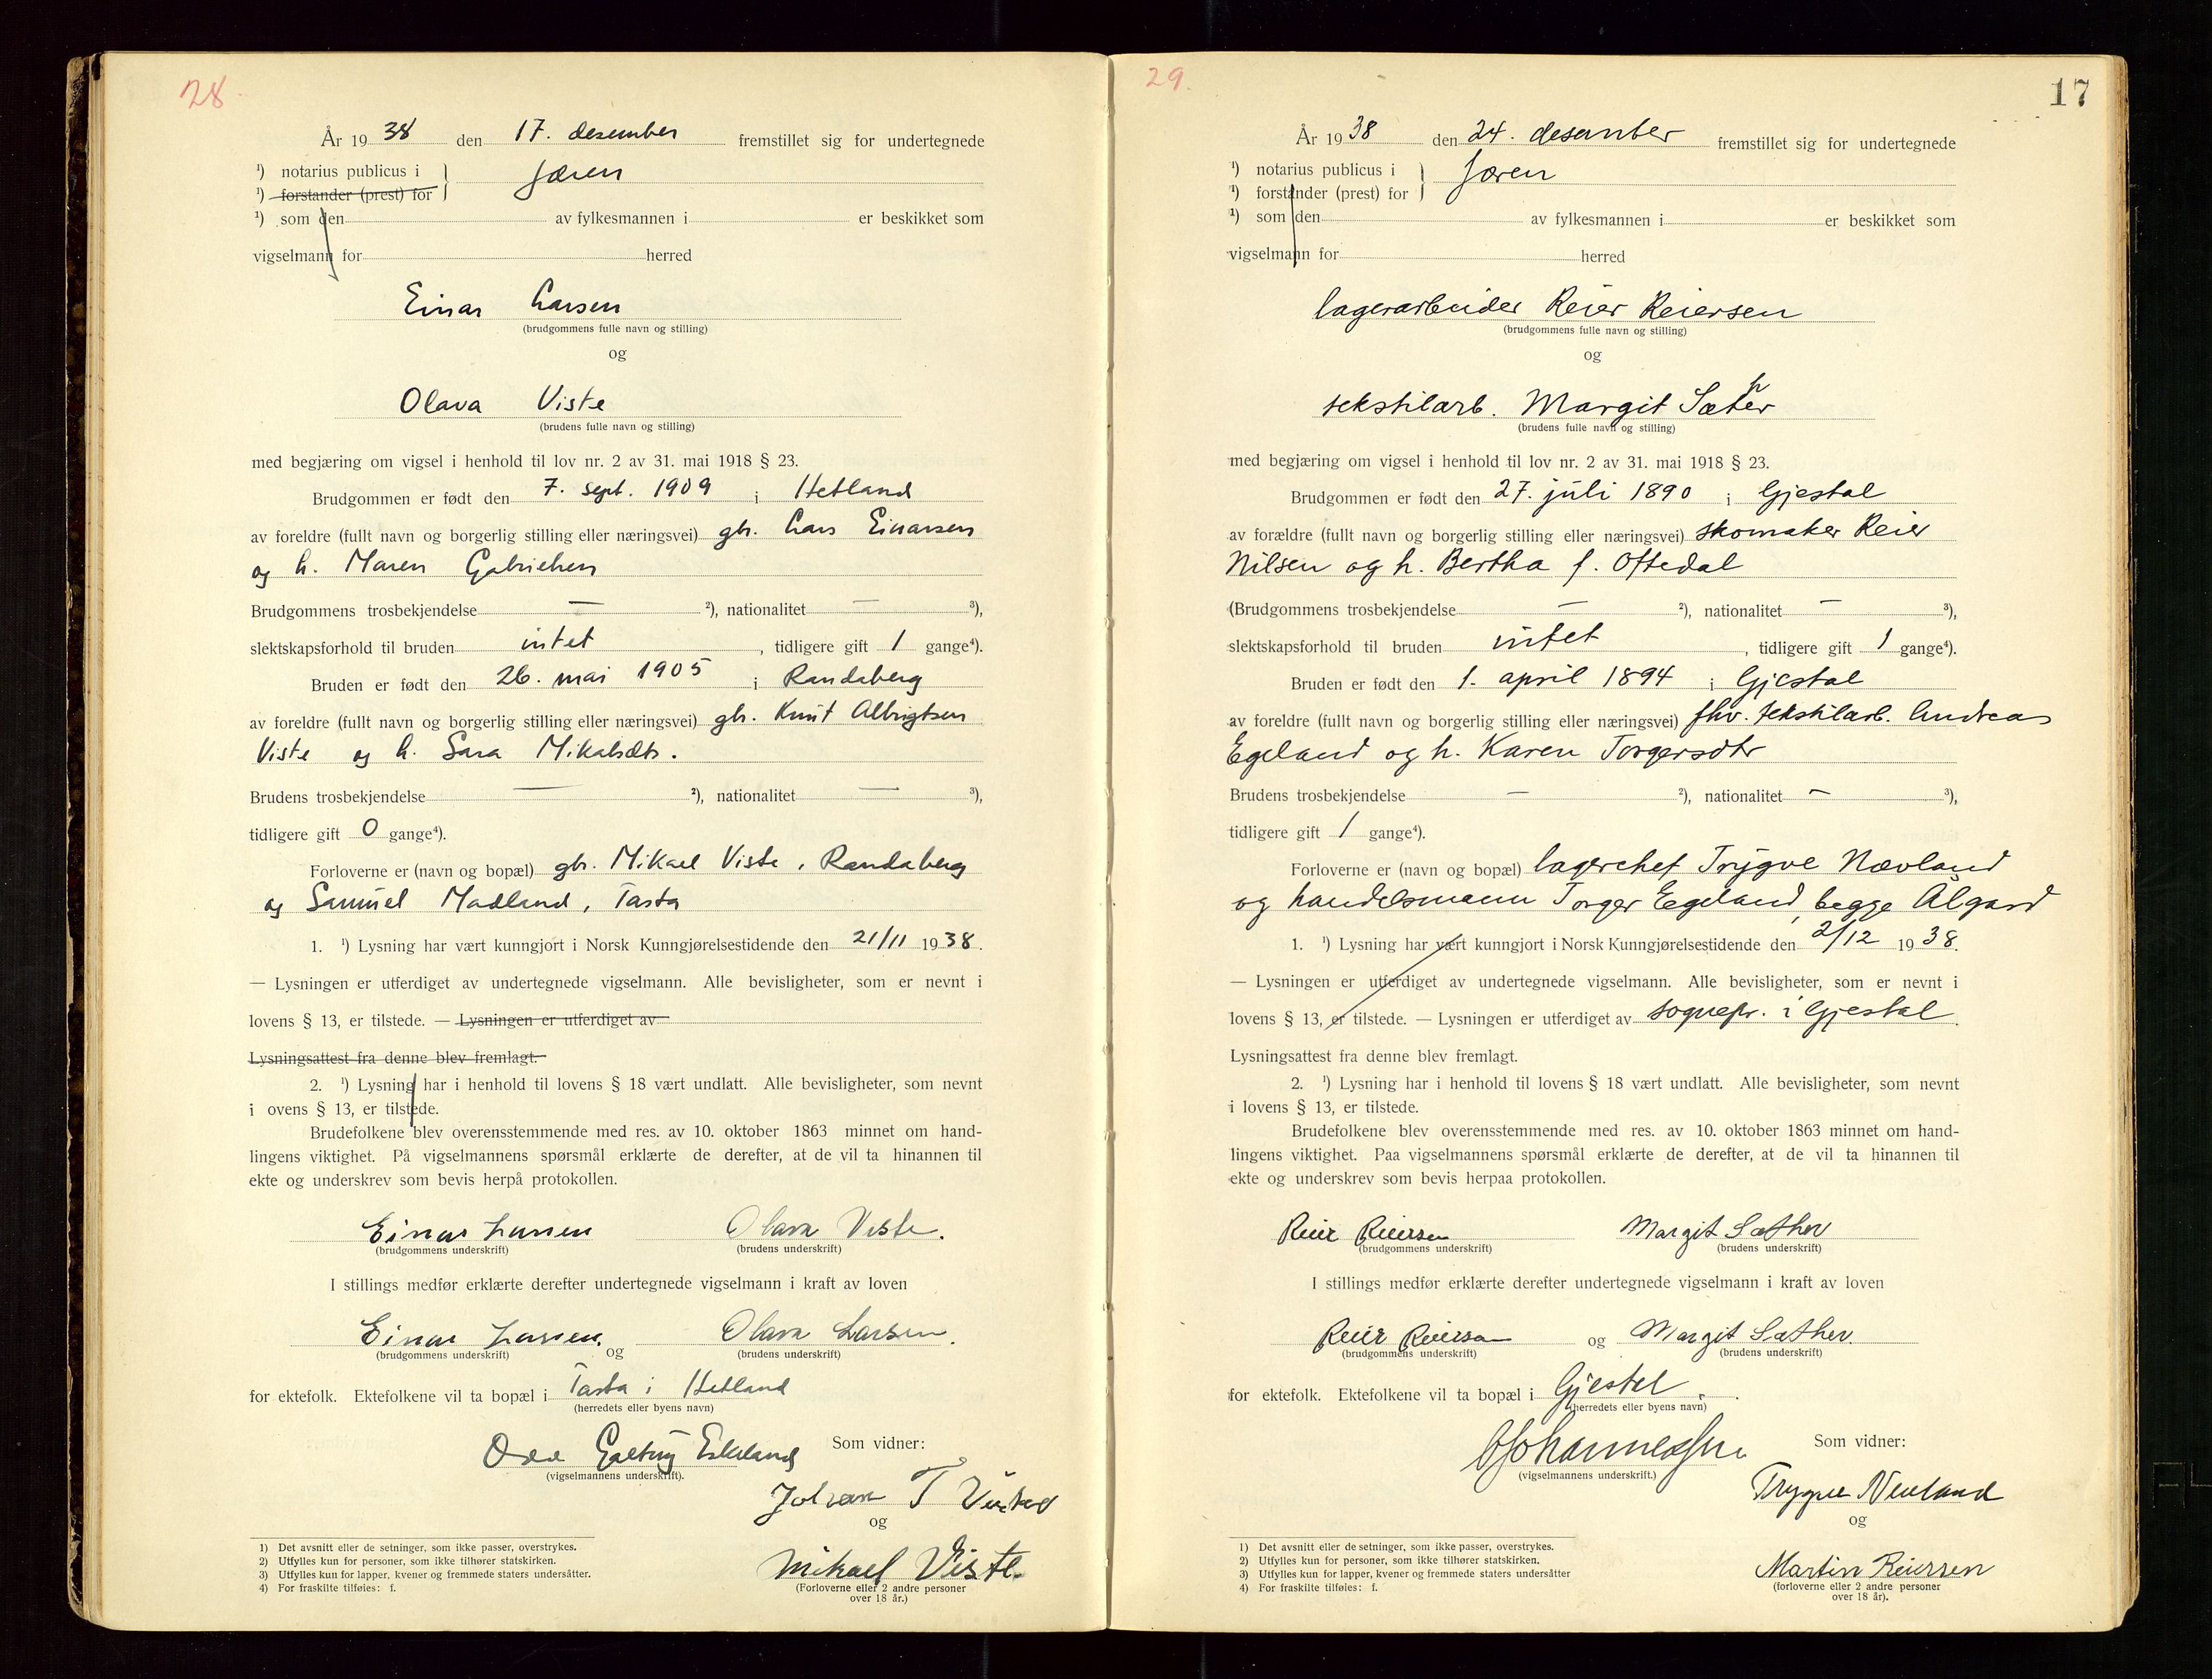 28
År 1938 den 17. desember fremstillet sig for undertegnede
¹) notarius publicus i } Jæren
¹) forstander (prest) for
¹) som den av fylkesmannen i er beskikket som
vigselmann for herred
Einar Larsen
(brudgommens fulle navn og stilling)
og
Olava Viste
(brudens fulle navn og stilling)
med begjæring om vigsel i henhold til lov nr. 2 av 31. mai 1918 § 23.
Brudgommen er født den 7. sept. 1909 i Hetland
av foreldre (fullt navn og borgerlig stilling eller næringsvei) gbr. Lars Einarsen
og h. Maren Gabrielsen
Brudgommens trosbekjendelse — ²), nationalitet — ³),
slektskapsforhold til bruden intet, tidligere gift 1 gange⁴).
Bruden er født den 26. mai 1905 i Randaberg
av foreldre (fullt navn og borgerlig stilling eller næringsvei) gbr. Knut Albrigtsen
Viste og h. Sara Mikalsdtr.
Brudens trosbekjendelse — ²), nationalitet — ³),
tidligere gift 0 gange⁴).
Forloverne er (navn og bopæl) gbr. Mikael Viste, Randaberg
og Samuel Madland, Tasta
1. ¹) Lysning har vært kunngjort i Norsk Kunngjørelsestidende den 21/11 1938.
— Lysningen er utferdiget av undertegnede vigselmann. Alle bevisligheter, som er nevnt i
lovens § 13, er tilstede. — Lysningen er utferdiget av
Lysningsattest fra denne blev fremlagt.
2. ¹) Lysning har i henhold til lovens § 18 vært undlatt. Alle bevisligheter, som nevnt
i ovens § 13, er tilstede.
Brudefolkene blev overensstemmende med res. av 10. oktober 1863 minnet om hand-
lingens viktighet. På vigselmannens spørsmål erklærte de derefter, at de vil ta hinannen til
ekte og underskrev som bevis herpå protokollen.
Einar Larsen Olava Viste.
(brudgommens underskrift) (brudens underskrift)
I stillings medfør erklærte derefter undertegnede vigselmann i kraft av loven
Einar Larsen. og Olava Larsen.
(brudgommens underskrift) (brudens underskrift)
for ektefolk. Ektefolkene vil ta bopæl i Tasta i Hetland
(herredets eller byens navn)
Odd Galtung Eskeland Som vidner:
(vigselmannens underskrift).
Johan T
og
Mikael Viste.
(Forloverne eller 2 andre personer
over 18 år.)
1) Det avsnitt eller de setninger, som ikke passer, overstrykes.
2) Utfylles kun for personer, som ikke tilhører statskirken.
3) Utfylles kun for lapper, kvener og fremmede staters undersåtter.
4) For fraskilte tilføies: f.
29.
17
År 1938 den 24. desember fremstillet sig for undertegnede
¹) notarius publicus i } Jæren
¹) forstander (prest) for
¹) som den av fylkesmannen i er beskikket som
vigselmann for herred
lagerarbeider Reier Reiersen
(brudgommens fulle navn og stilling)
og
h
tekstilarb. Margit Sæter
(brudens fulle navn og stilling)
med begjæring om vigsel i henhold til lov nr. 2 av 31. mai 1918 § 23.
Brudgommen er født den 27. juli 1890 i Gjestal
av forældre (fullt navn og borgerlig stilling eller næringsvei) skomaker Reier
Nilsen og h. Bertha f. Oftedal
(Brudgommens trosbekjendelse — ²), nationalitet — ³),
slektskapsforhold til bruden intet, tidligere gift 1 gange⁴).
Bruden er født den 1. april 1894 i Gjestal
av foreldre (fullt navn og borgerlig stilling eller næringsvei) fhv. tekstilarb. Andreas
Egeland og h. Karen Torgersdtr
Brudens trosbekjendelse — ²), nationalitet — ³),
tidligere gift 1 gange⁴).
Forloverne er (navn og bopæl) lagerchef Trygve Nævland
og handelsmann Torger Egeland, begge Ålgård
1. ¹) Lysning har vært kunngjort i Norsk Kunngjørelsestidende den 2/12 1938.
— Lysningen er utferdiget av undertegnede vigselmann. Alle bevisligheter, som er nevnt i
lovens § 13, er tilstede. — Lysningen er utferdiget av sognepr. i Gjestal.
Lysningsattest fra denne blev fremlagt.
2. ¹) Lysning har i henhold til lovens § 18 vært undlatt. Alle bevisligheter, som nevnt
i lovens § 13, er tilstede.
Brudefolkene blev overensstemmende med res. av 10. oktober 1863 minnet om hand-
lingens viktighet. Paa vigselmannens spørsmål erklærte de derefter, at de vil ta hinannen til
ekte og underskrev som bevis herpaa protokollen.
Reier Reiersen Margit Sæther
(brudgommens underskrift) (brudens underskrift)
I stillings medfør erklærte derefter undertegnede vigselmann i kraft av loven
Reier Reiersen og Margit Sæther.
(brudgommens underskrift) (brudens underskrift)
for ektefolk. Ektefolkene vil ta bopæl i Gjestal.
(herredets eller byens navn)
Som vidner:
(vigselmannens underskrift.)
Trygve Nevland
og
Martin Reiersen
(forloverne eller 2 andre personer
over 18 år).
1) Det avsnitt eller de setninger, som ikke passer, overstrykes.
2) Utfylles kun for personer, som ikke tilhører statskirken.
3) Utfylles kun for lapper, kvener og fremmede staters undersåtter
4) For fraskilte tilføies: f.